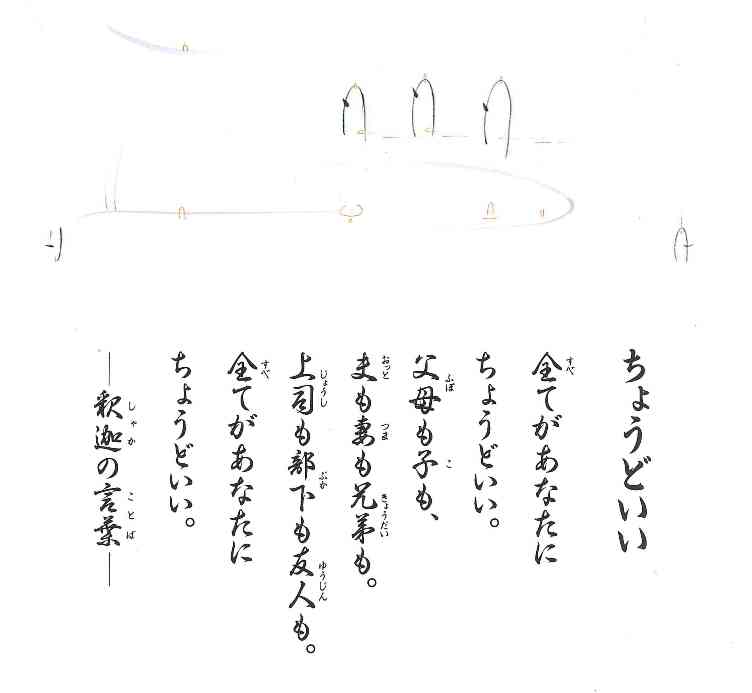 ちょうどいい
全てがあなたに
ちょうどいい。
父母も子も、
夫も妻も兄弟も。
上司も部下も友人も。
全てがあなたに
ちょうどいい。
―釈迦の言葉―